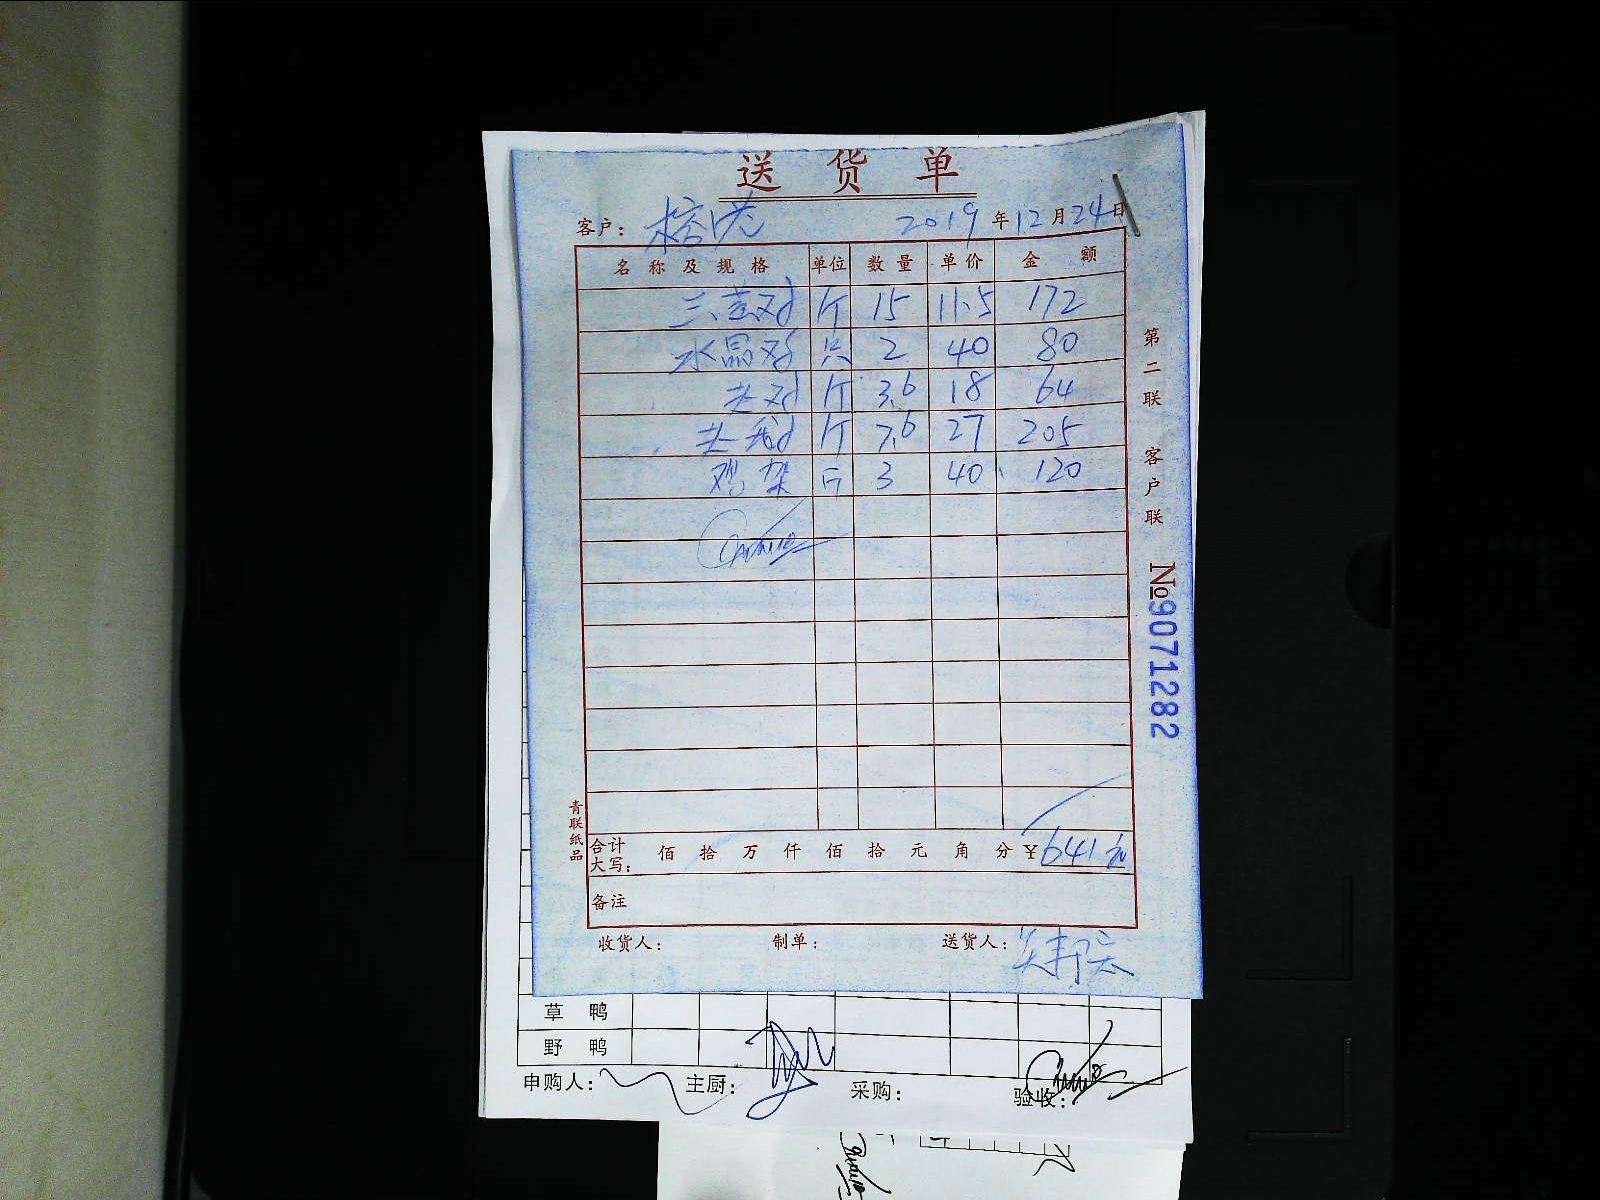 送货单
客户： 2019年12月24日
名称及规格 单位 数量 单价 金额
三黄鸡 斤 15 11.5 172
水晶鸡 只 2 40 80
老鸡 斤 3.6 18 64
斤 7.6 27 205
鸡架 3 40 120
合计大写： 佰 拾 万 仟 佰 拾 元 角 分 ¥641元
备注
收货人： 制单： 送货人：
第二联 客户联
№9071282
青联纸品
草鸭
野鸭
申购人： 主厨： 采购： 验收：